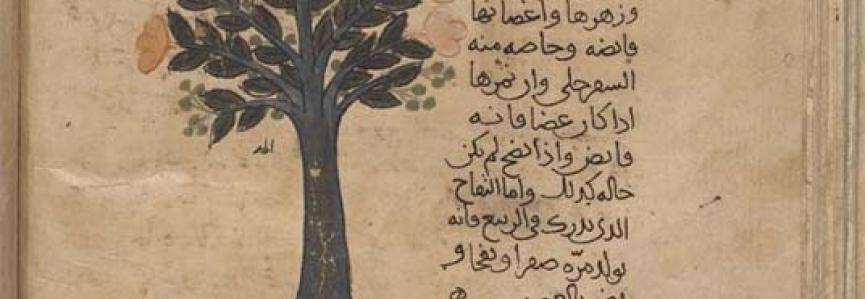 وزهرها واغصانها
قابضه وخاصه منه
السفرجلى وان ثمرها
اذا كان غضا فانه
قابض واذا نضج لم يكن
حاله كذلك واما التفاح
الذى يدرك فى الربيع فانه
يولد مرّه صفرا ونفخا و